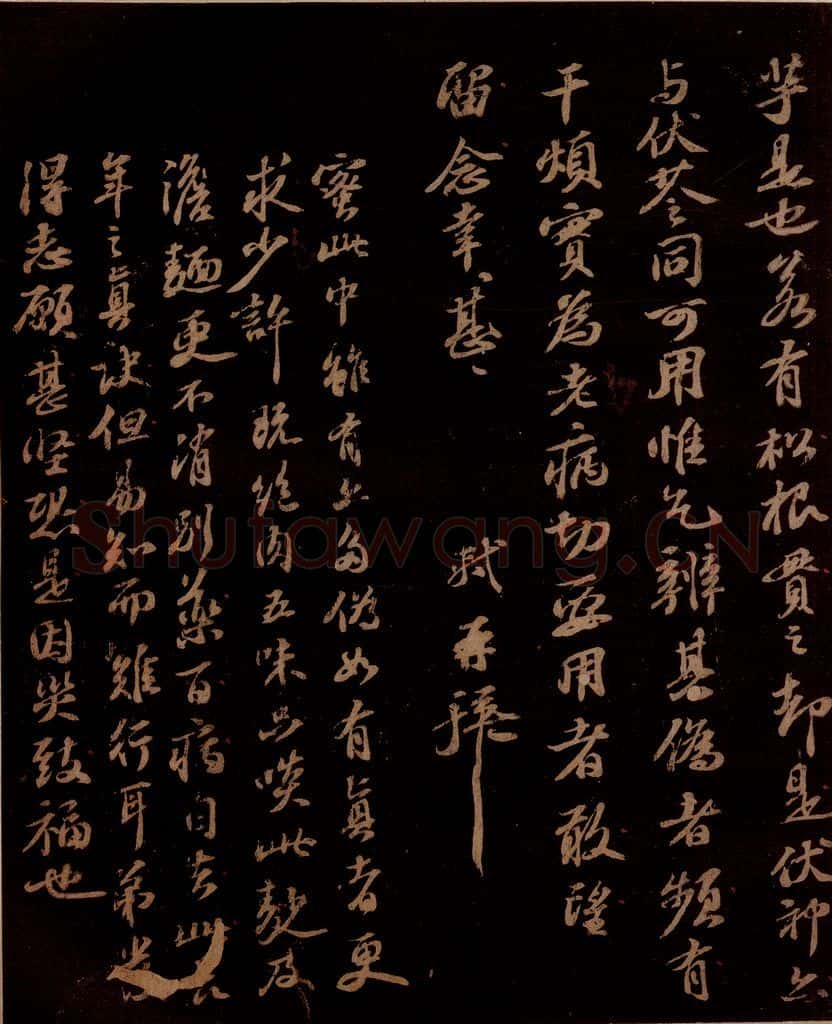 芋是也若有松根貫之却是伏神亦
与伏苓同可用惟乞辨其偽者頻有
干煩實為老病切要用者敢望
留念幸甚
軾再拜
蜜此中雖有亦多偽如有真者更
求少許既絶肉五味只啖此麨及
澹麵更不消別藥百病自去此
年之真訣但易知而難行耳弟
得志願甚堅恐是因災致福也
Shutawang.CN